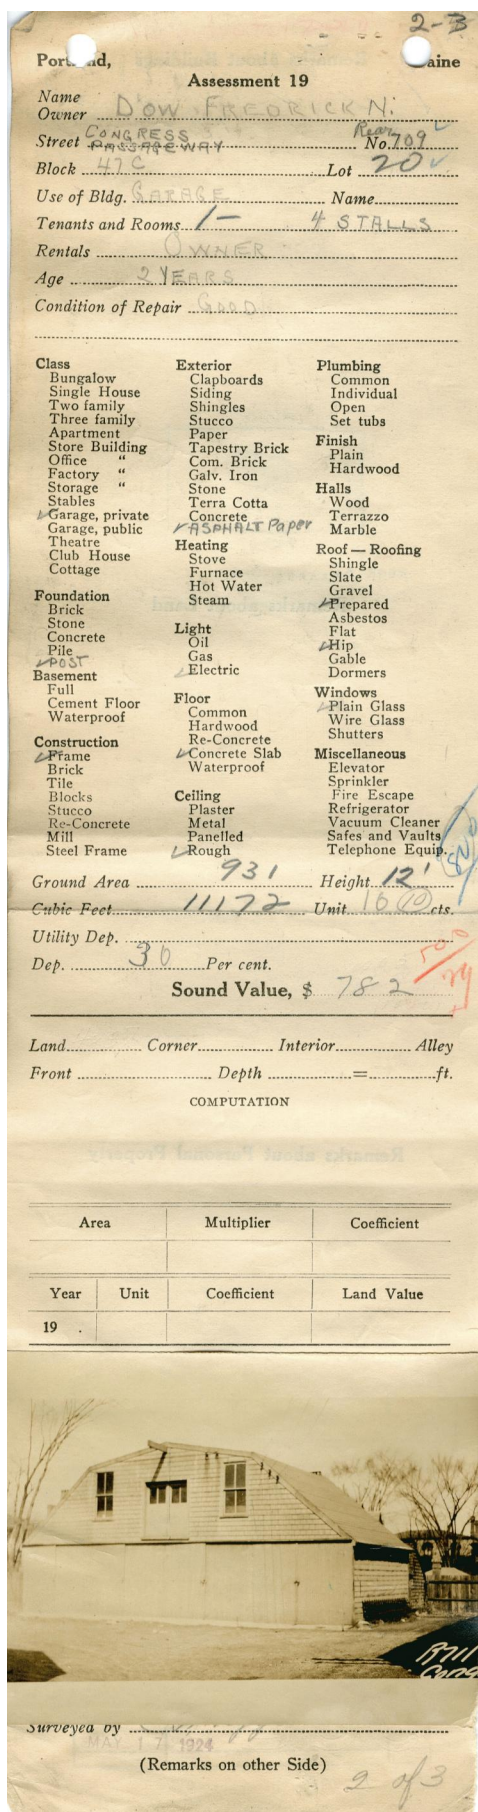 2-3
Portland, Maine
Assessment 19
Name
Owner DOW FREDRICK N.
Street CONGRESS PASSAGEWAY Rear No. 709
Block 47 C Lot 20
Use of Bldg. GARAGE Name
Tenants and Rooms 1- 4 STALLS
Rentals OWNER
Age 2 YEARS
Condition of Repair GOOD
Class
Bungalow
Single House
Two family
Three family
Apartment
Store Building
Office "
Factory "
Storage "
Stables
✓Garage, private
Garage, public
Theatre
Club House
Cottage
Foundation
Brick
Stone
Concrete
Pile
✓POST
Basement
Full
Cement Floor
Waterproof
Construction
✓Frame
Brick
Tile
Blocks
Stucco
Re-Concrete
Mill
Steel Frame
Exterior
Clapboards
Siding
Shingles
Stucco
Paper
Tapestry Brick
Com. Brick
Galv. Iron
Stone
Terra Cotta
Concrete
✓ASPHALT Paper
Heating
Stove
Furnace
Hot Water
Steam
Light
Oil
Gas
✓Electric
Floor
Common
Hardwood
Re-Concrete
✓Concrete Slab
Waterproof
Ceiling
Plaster
Metal
Panelled
✓Rough
Plumbing
Common
Individual
Open
Set tubs
Finish
Plain
Hardwood
Halls
Wood
Terrazzo
Marble
Roof — Roofing
Shingle
Slate
Gravel
✓Prepared
Asbestos
Flat
✓Hip
Gable
Dormers
Windows
✓Plain Glass
Wire Glass
Shutters
Miscellaneous
Elevator
Sprinkler
Fire Escape
Refrigerator
Vacuum Cleaner
Safes and Vaults
Telephone Equip.
Ground Area 931 Height 12'
Cubic Feet 11172 Unit 10 cts.
Utility Dep.
Dep. 30 Per cent.
Sound Value, $ 782
Land Corner Interior Alley
Front Depth = ft.
COMPUTATION
Remarks about Personal Property
Area Multiplier Coefficient
Year Unit Coefficient Land Value
19 .
R711
Cong
Surveyed by
MAY 17 1924
(Remarks on other Side)
2 of 3